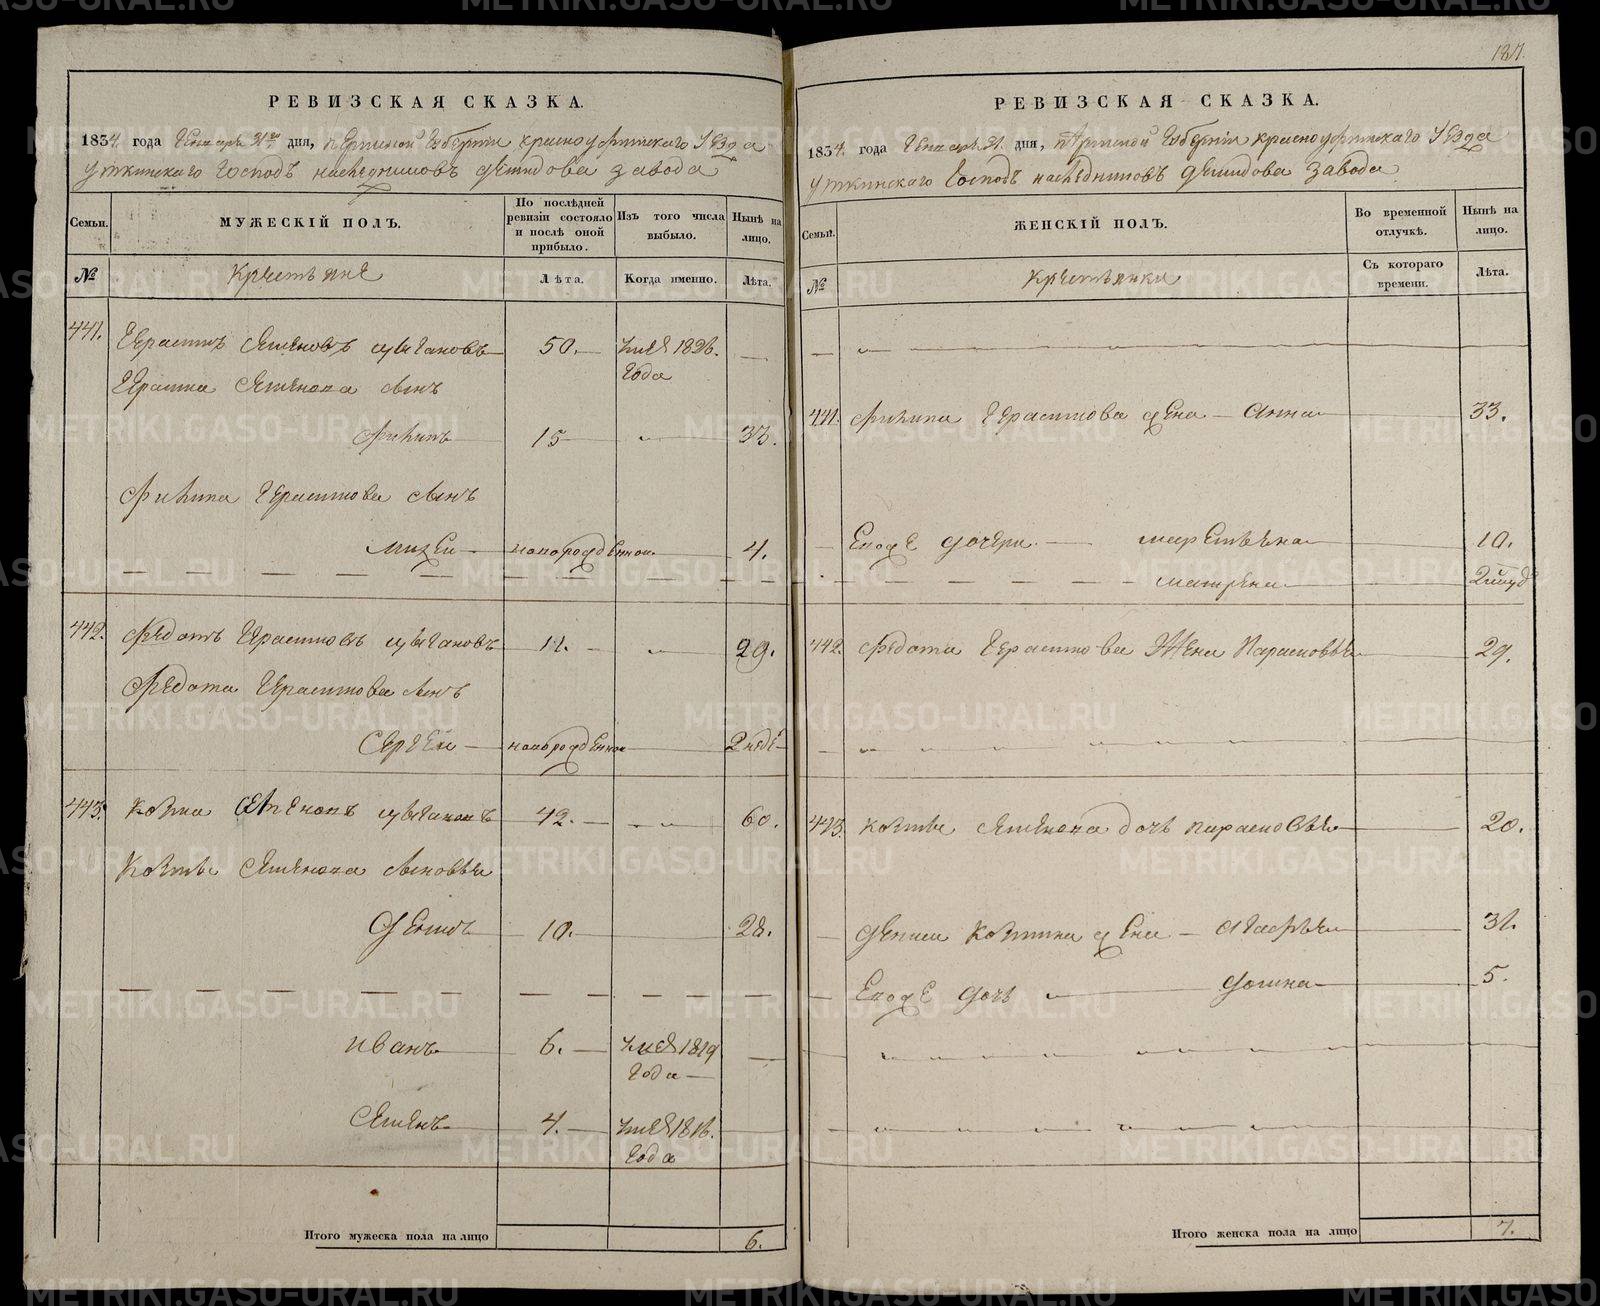 187.
РЕВИЗСКАЯ СКАЗКА.
1834 года Генваря 31го дня, Пермской Губернии Красноуфимскаго Уезда
Уткинскаго Господъ наследниковъ Демидова завода
Семьи.
МУЖЕСКІЙ ПОЛЪ.
По послѣдней ревизіи состояло и послѣ оной прибыло.
Изъ того числа выбыло.
Нынѣ на лицо.
№
Крестьяне
Лѣта.
Когда именно.
Лѣта.
441. Герасимъ Семеновъ 50. 1826. —
года
Герасима Семенова сынъ
Филипъ 15 — 33.
Филипа Герасимова сынъ
новорожденной 4.
442. Федотъ Герасимовъ 11. — 29.
Федота Герасимова сынъ
Сергей — новорожденной 2 неде
443. Козма Семеновъ 42. — 60.
Козмы Семенова сыновья
Денисъ 10. — 28.
Иванъ 6. — 1819
года —
Семенъ 4. — 1818.
года
Итого мужеска пола на лицо 6.
РЕВИЗСКАЯ СКАЗКА.
1834 года Генваря 31 дня, Пермской Губерніи Красноуфимскаго Уезда
Уткинскаго Господъ наследниковъ Демидова завода
Семьи.
ЖЕНСКІЙ ПОЛЪ.
Во временной отлучкѣ.
Нынѣ на лицо.
№
Крестьянки
Съ котораго времени.
Лѣта.
441. Филипа Герасимова жена — Анна 33.
Егоже дочери — 10.
Матрена 2
442. Федота Герасимова жена Парасковья 29.
443. Козмы Семенова дочь Парасковья 20.
Дениса Козмина жена — Агафья 31.
Егоже дочь — Домна 5.
Итого женска пола на лицо 7.
METRIKI.GASO-URAL.RU